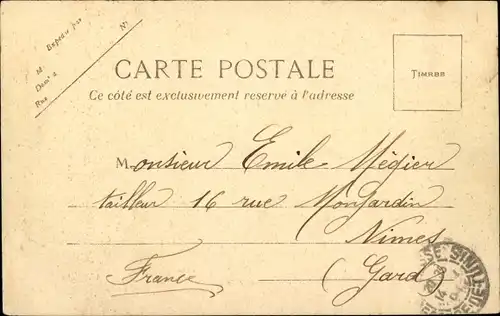 Expédié par
M.
Dem^t à
Rue N°
CARTE POSTALE
Ce côté est exclusivement reservé à l'adresse
TIMBRE
Monsieur Emile Mégier
tailleur 16 rue Monjardin
Nimes
(Gard)
France